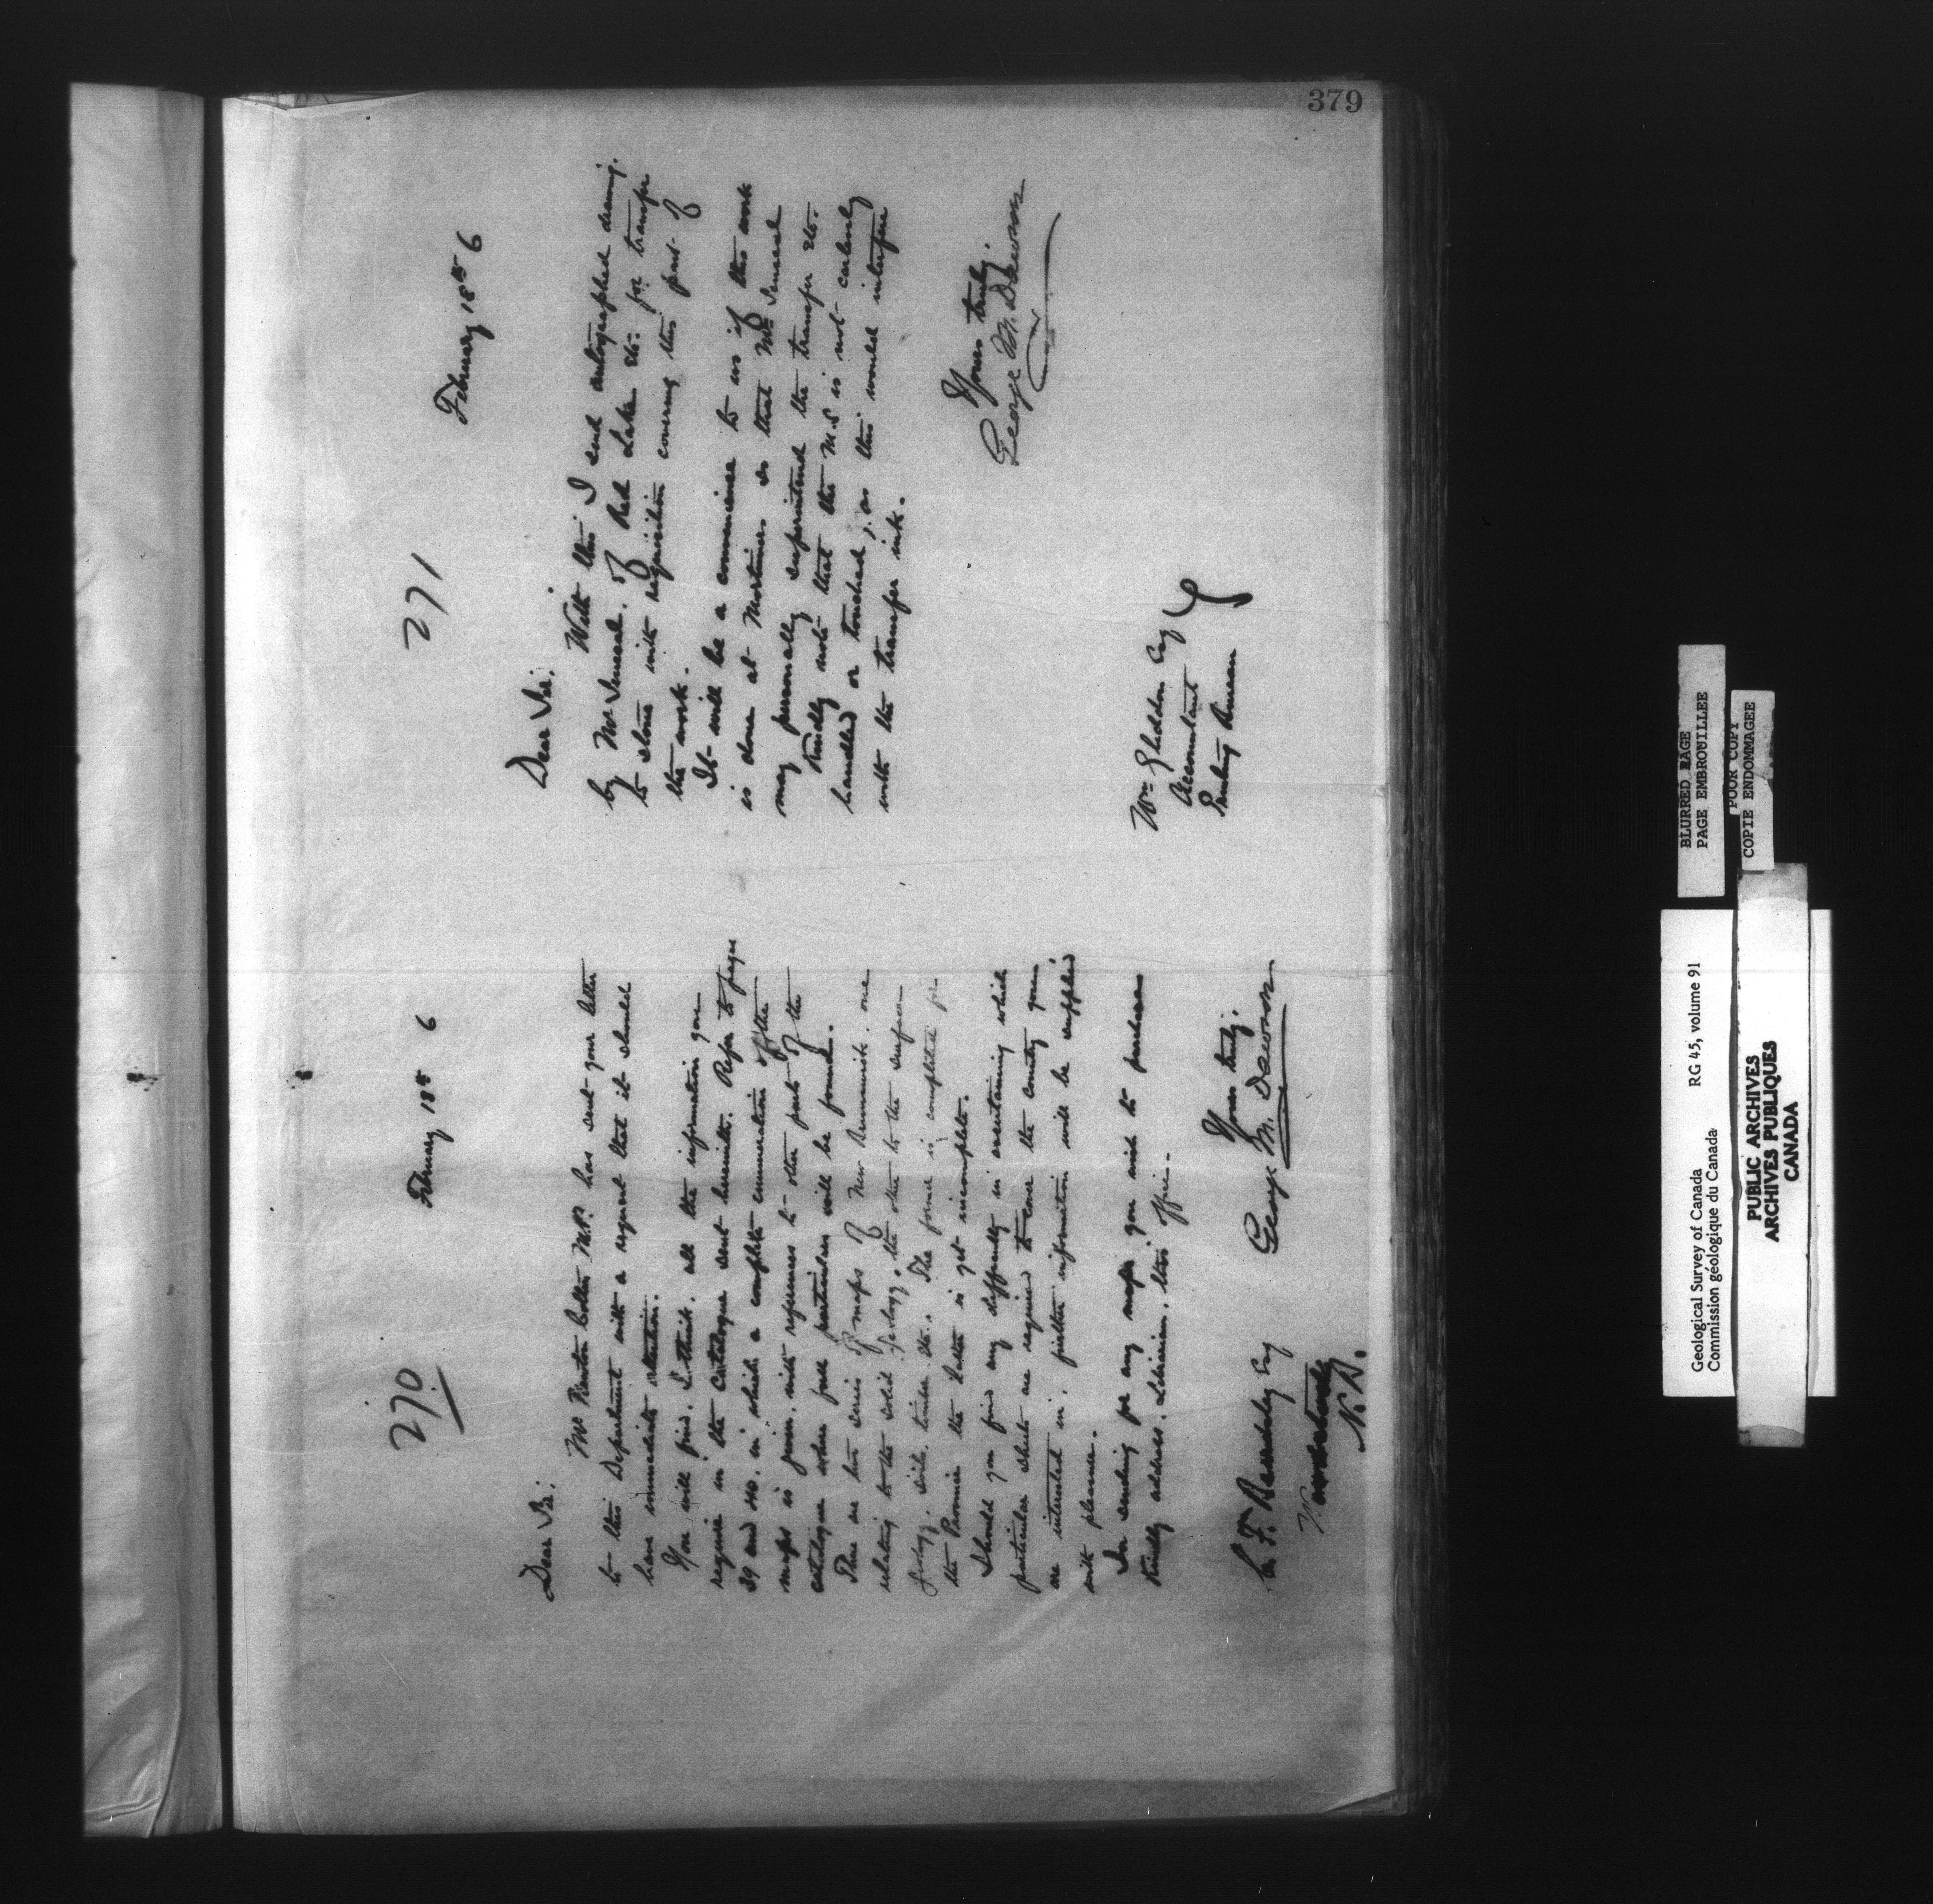 379
270
February 18th 6
Dear Sir.
Mr Newton M.P. has sent your letter
to this Department with a request that it should
have immediate attention.
You will find, I think, all the information you
require in the Catalogue sent herewith. Refer to pages
39 and 40, in which a complete enumeration of the
maps is given, with references to other parts of the
catalogue where full particulars will be found.
There are two series of maps of New Brunswick, one
relating to the solid geology, the other to the surface
geology, soils, timber etc. The former is completed for
the Province the latter is yet incomplete.
Should you find any difficulty in ascertaining which
particular sheets are required to cover the county you
are interested in, further information will be supplied
with pleasure.
In sending for any maps you wish to purchase
kindly address, Librarian, this office.
Yours truly.
George M. Dawson
C. F. Beardsley Esq
Woodstock
N.B.
271
February 18th 6
Dear Sir.
With this I send autographed drawing.
by Mr Senecal. of Red Lake etc. for transfer
to stone with requisition covering this part of
the work.
It will be a convenience to us if this work
is done at Mortimer's so that Mr Senecal
may personally superintend the transfer etc.
Kindly note that the M.S is not carelessly
handled or touched, as this would interfere
with the transfer ink.
Yours truly.
George M. Dawson
Wm Gliddon Esq
Accountant
Printing Bureau
BLURRED PAGE
PAGE EMBROUILLEE
POOR COPY
COPIE ENDOMMAGEE
Geological Survey of Canada RG 45, volume 91
Commission géologique du Canada
PUBLIC ARCHIVES
ARCHIVES PUBLIQUES
CANADA